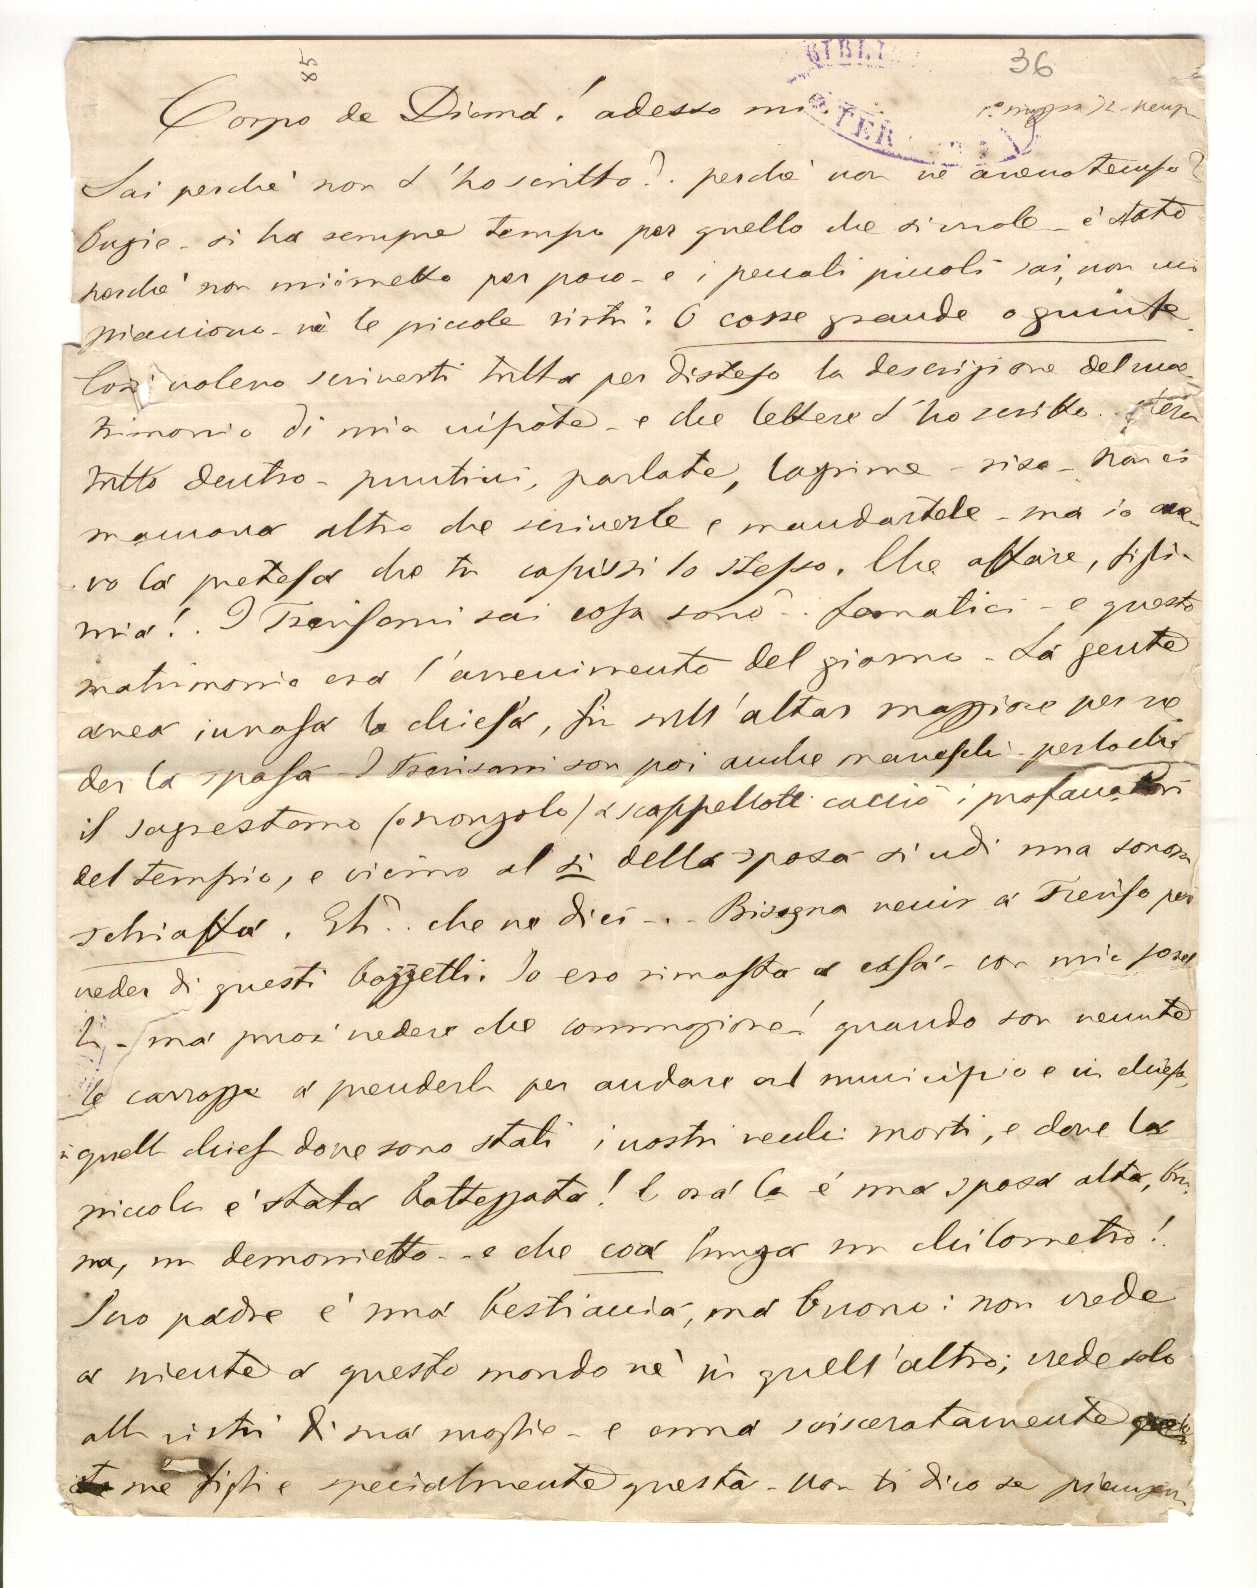 85
36
BIBLI
TER
Corpo de Diana! adesso mi
1° marzo 72
Sai perchè non t'ho scritto?. perchè non ne avevo tempo?
bugie - si ha sempre tempo per quello che si vuole - è stato
perchè non mi ci metto per poco - e i peccati piccoli sai, non mi
piacciono - nè le piccole virtù. O cosse grande o gninte
Così volevo scriverti tutta per disteso la descrizione del ma-
trimonio di mia nipote - e che lettere t'ho scritto. C'era
tutto dentro - puntini, parlate, lagrime - risa - non ci
mancava altro che scriverle e mandartele - ma io ave-
vo la pretesa che tu capissi lo stesso. Che affare, figlia
mia!. I Trevisani sai cosa sono?.. fanatici - e questo
matrimonio era l'avvenimento del giorno - La gente
avea invasa la chiesa, fin sull'altar maggiore per ve
der la sposa - I Trevisani son poi anche maneschi - perlochè
il sagrestano (o nonzolo) a scappellotti cacciò i profanatori
del tempio, e vicino al si della sposa si udì una sonora
schiaffa. Eh?. che ne dici -.- Bisogna venir a Treviso per
veder di questi bozzetti. Io ero rimasta a casa - con mia sorel
la - ma puoi vedere che commozione! quando son venute
le carrozze a prenderla per andare al municipio e in chiesa,
in quella chiesa dove sono stati i nostri vecchi morti, e dove la
piccola è stata battezzata! E ora la è una sposa alta, bru-
na, un demonietto -- e che coa lunga un chilometro!
Suo padre è una bestiaccia, ma buono: non crede
a niente a questo mondo nè in quell'altro; crede solo
alla virtù di sua moglie - e ama svisceratamente
sue figlie specialmente questa - non ti dico se piangeva